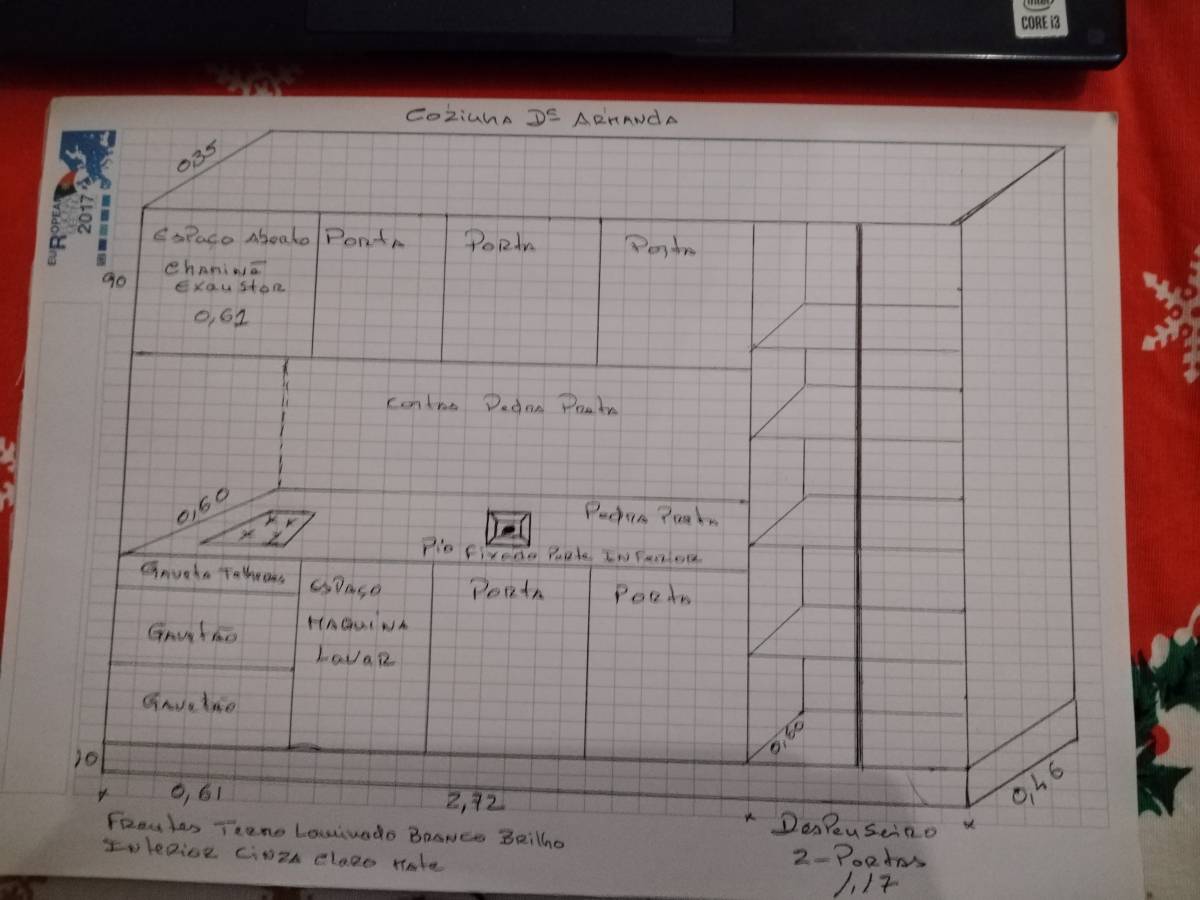 intel
CORE i3
COZINHA Dª ARMANDA
EUROPEAN
2017
0,35
ESPAÇO Aberto
CHAMINÉ
EXAUSTOR
0,61
PORTA
PORTA
PORTA
90
Contra Pedra Preta
0,60
Pedra Preta
Pio Fixado Parte INFERIOR
GAVETA Talheres
GAVETÃO
GAVETÃO
ESPAÇO
MAQUINA
LAVAR
PORTA
PORTA
0,60
0,46
10
0,61
2,72
Frentes Termo Laminado BRANCO Brilho
INTERIOR CINZA Claro Mate
Despenseiro
2-Portas
1,17